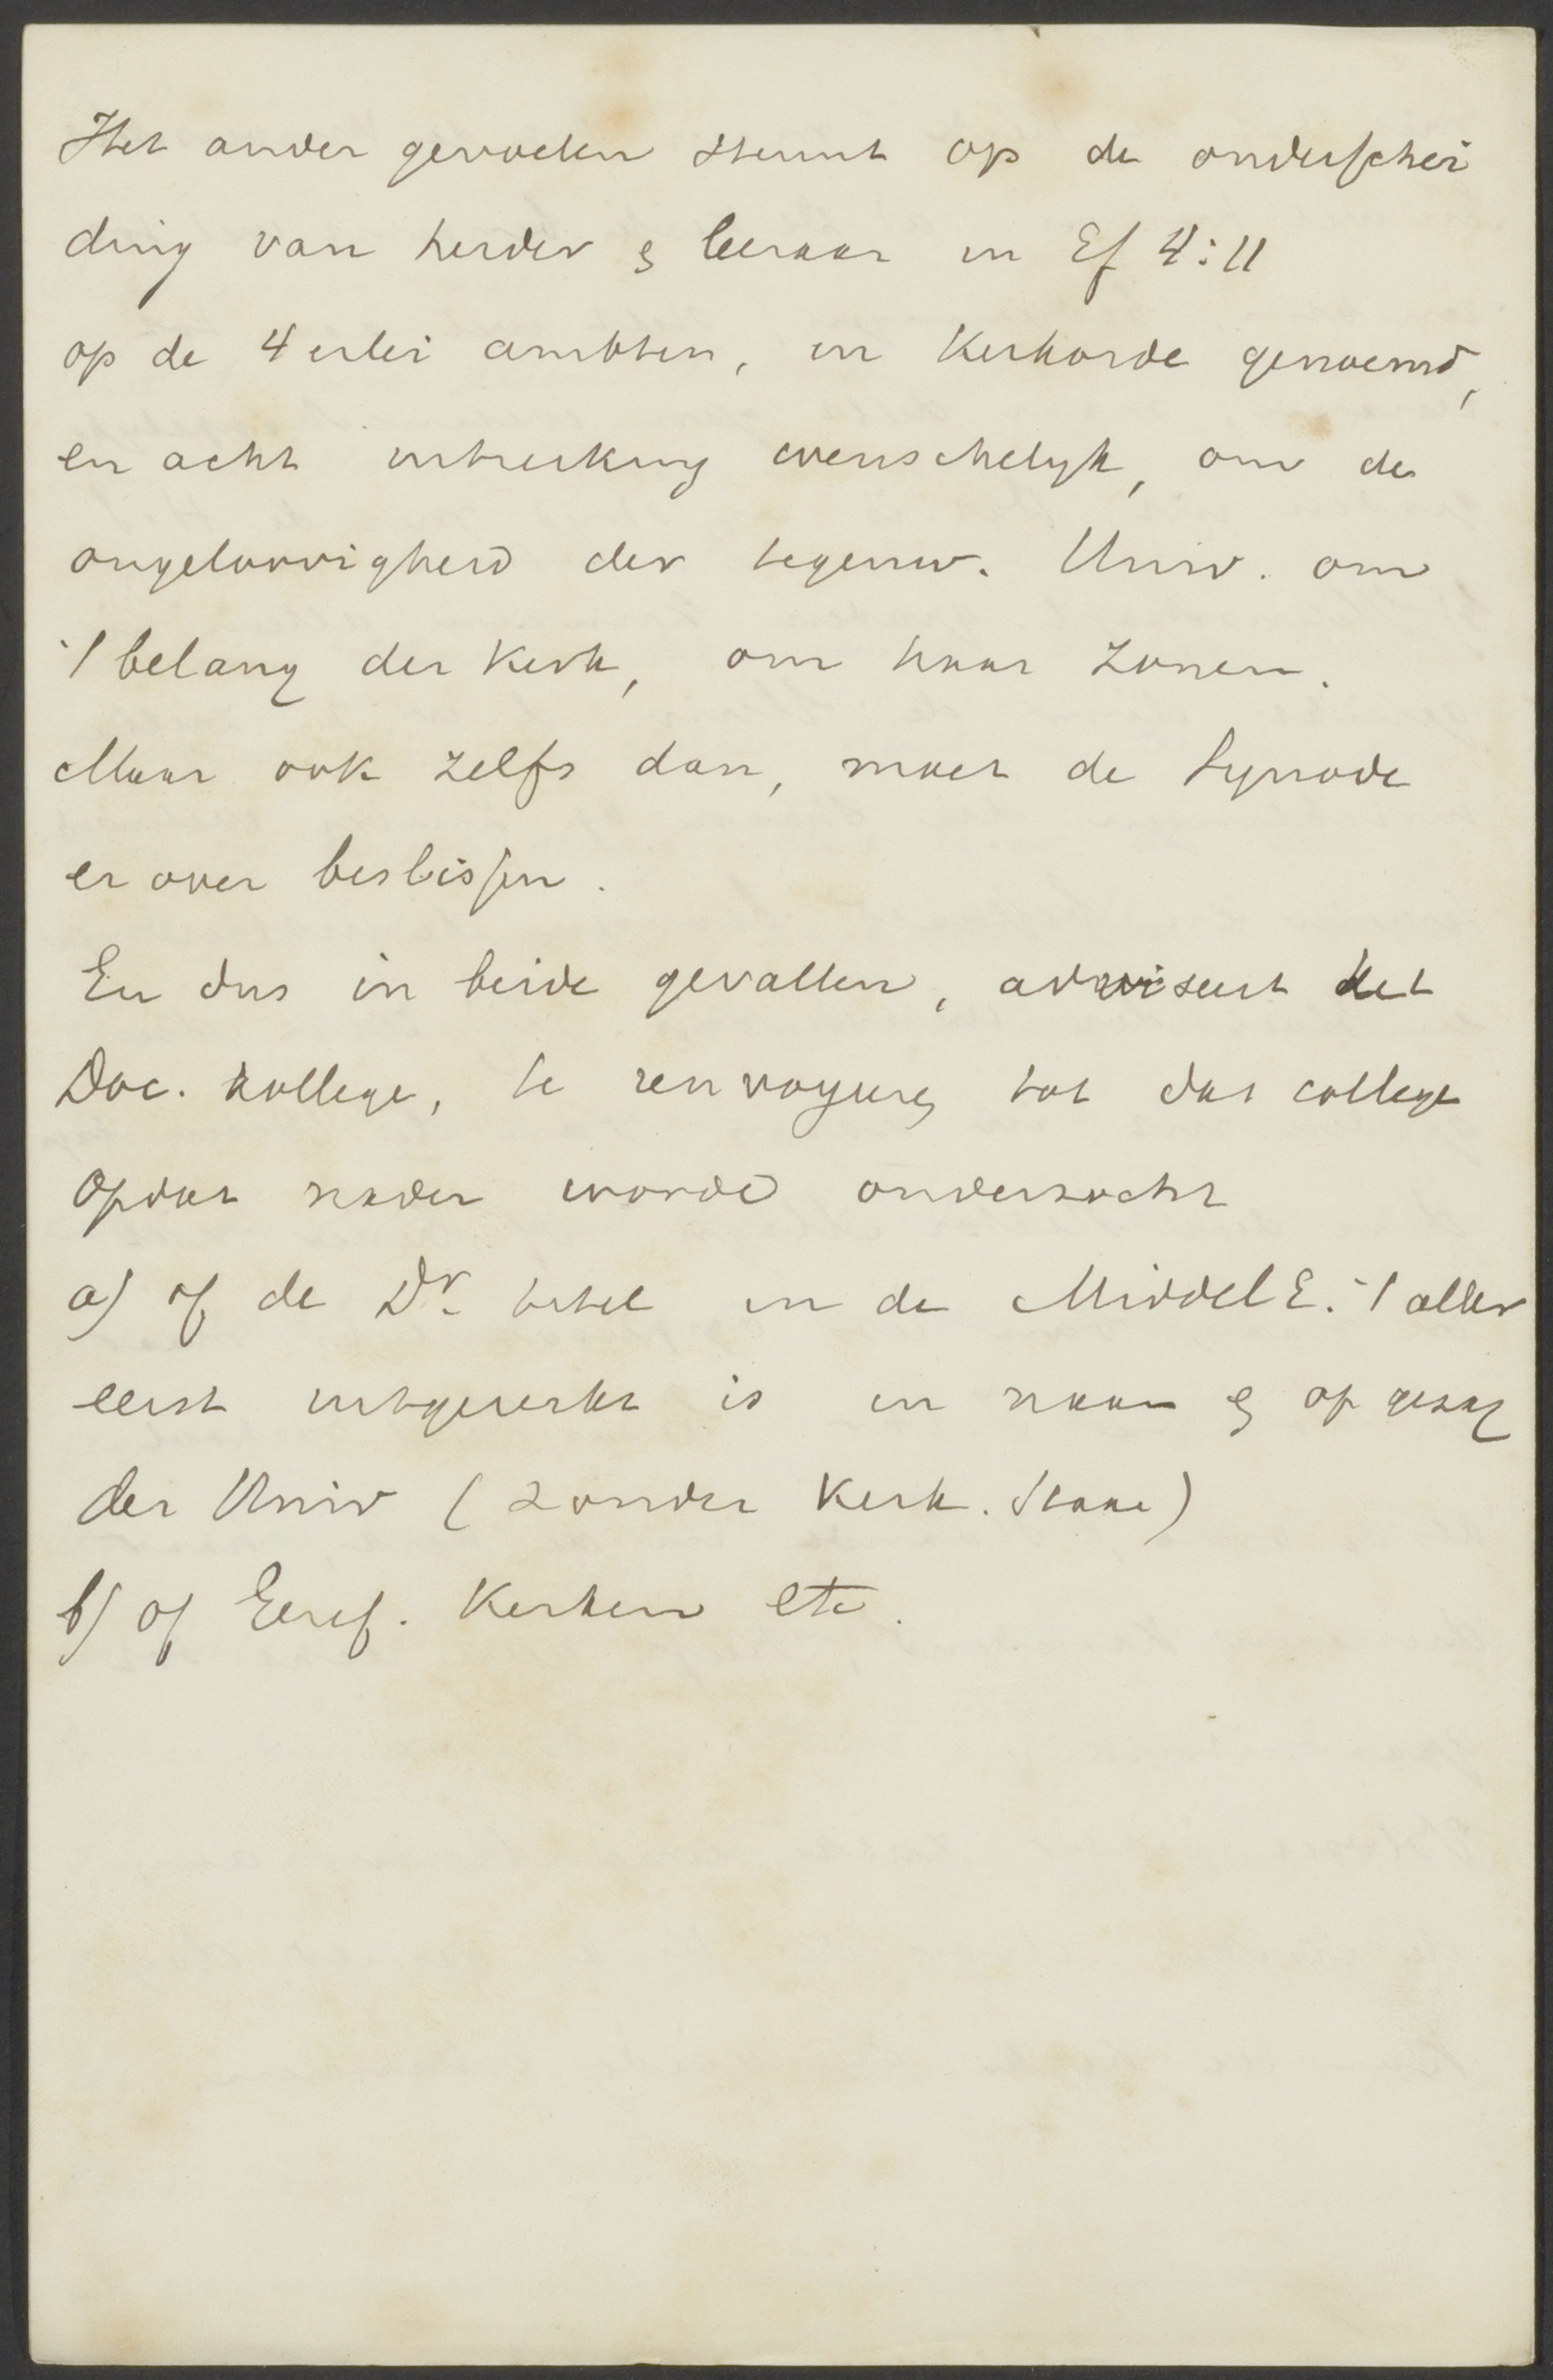 Het ander gevoelen steunt op de onderschei
ding van herder & leeraar in Ef 4:11
op de 4 erlei ambten, in Kerkorde genoemd,
en acht uitreiking wenschelyk, om de
ongeloovigheid der tegenw. Univ. om
't belang der Kerk, om haar zonen.
Maar ook zelfs dan, moet de Synode
er over beslissen.
En dus in beide gevallen, adviseert het
Doc. kollege, te renvoyeren tot dat college
opdat nader worde onderzocht
a) of de Dr. titel in de Middel E. 't aller
eerst uitgereikt is in naam & op gezag
der Univ (zonder Kerk. Staat)
b) of Geref. Kerken etc.